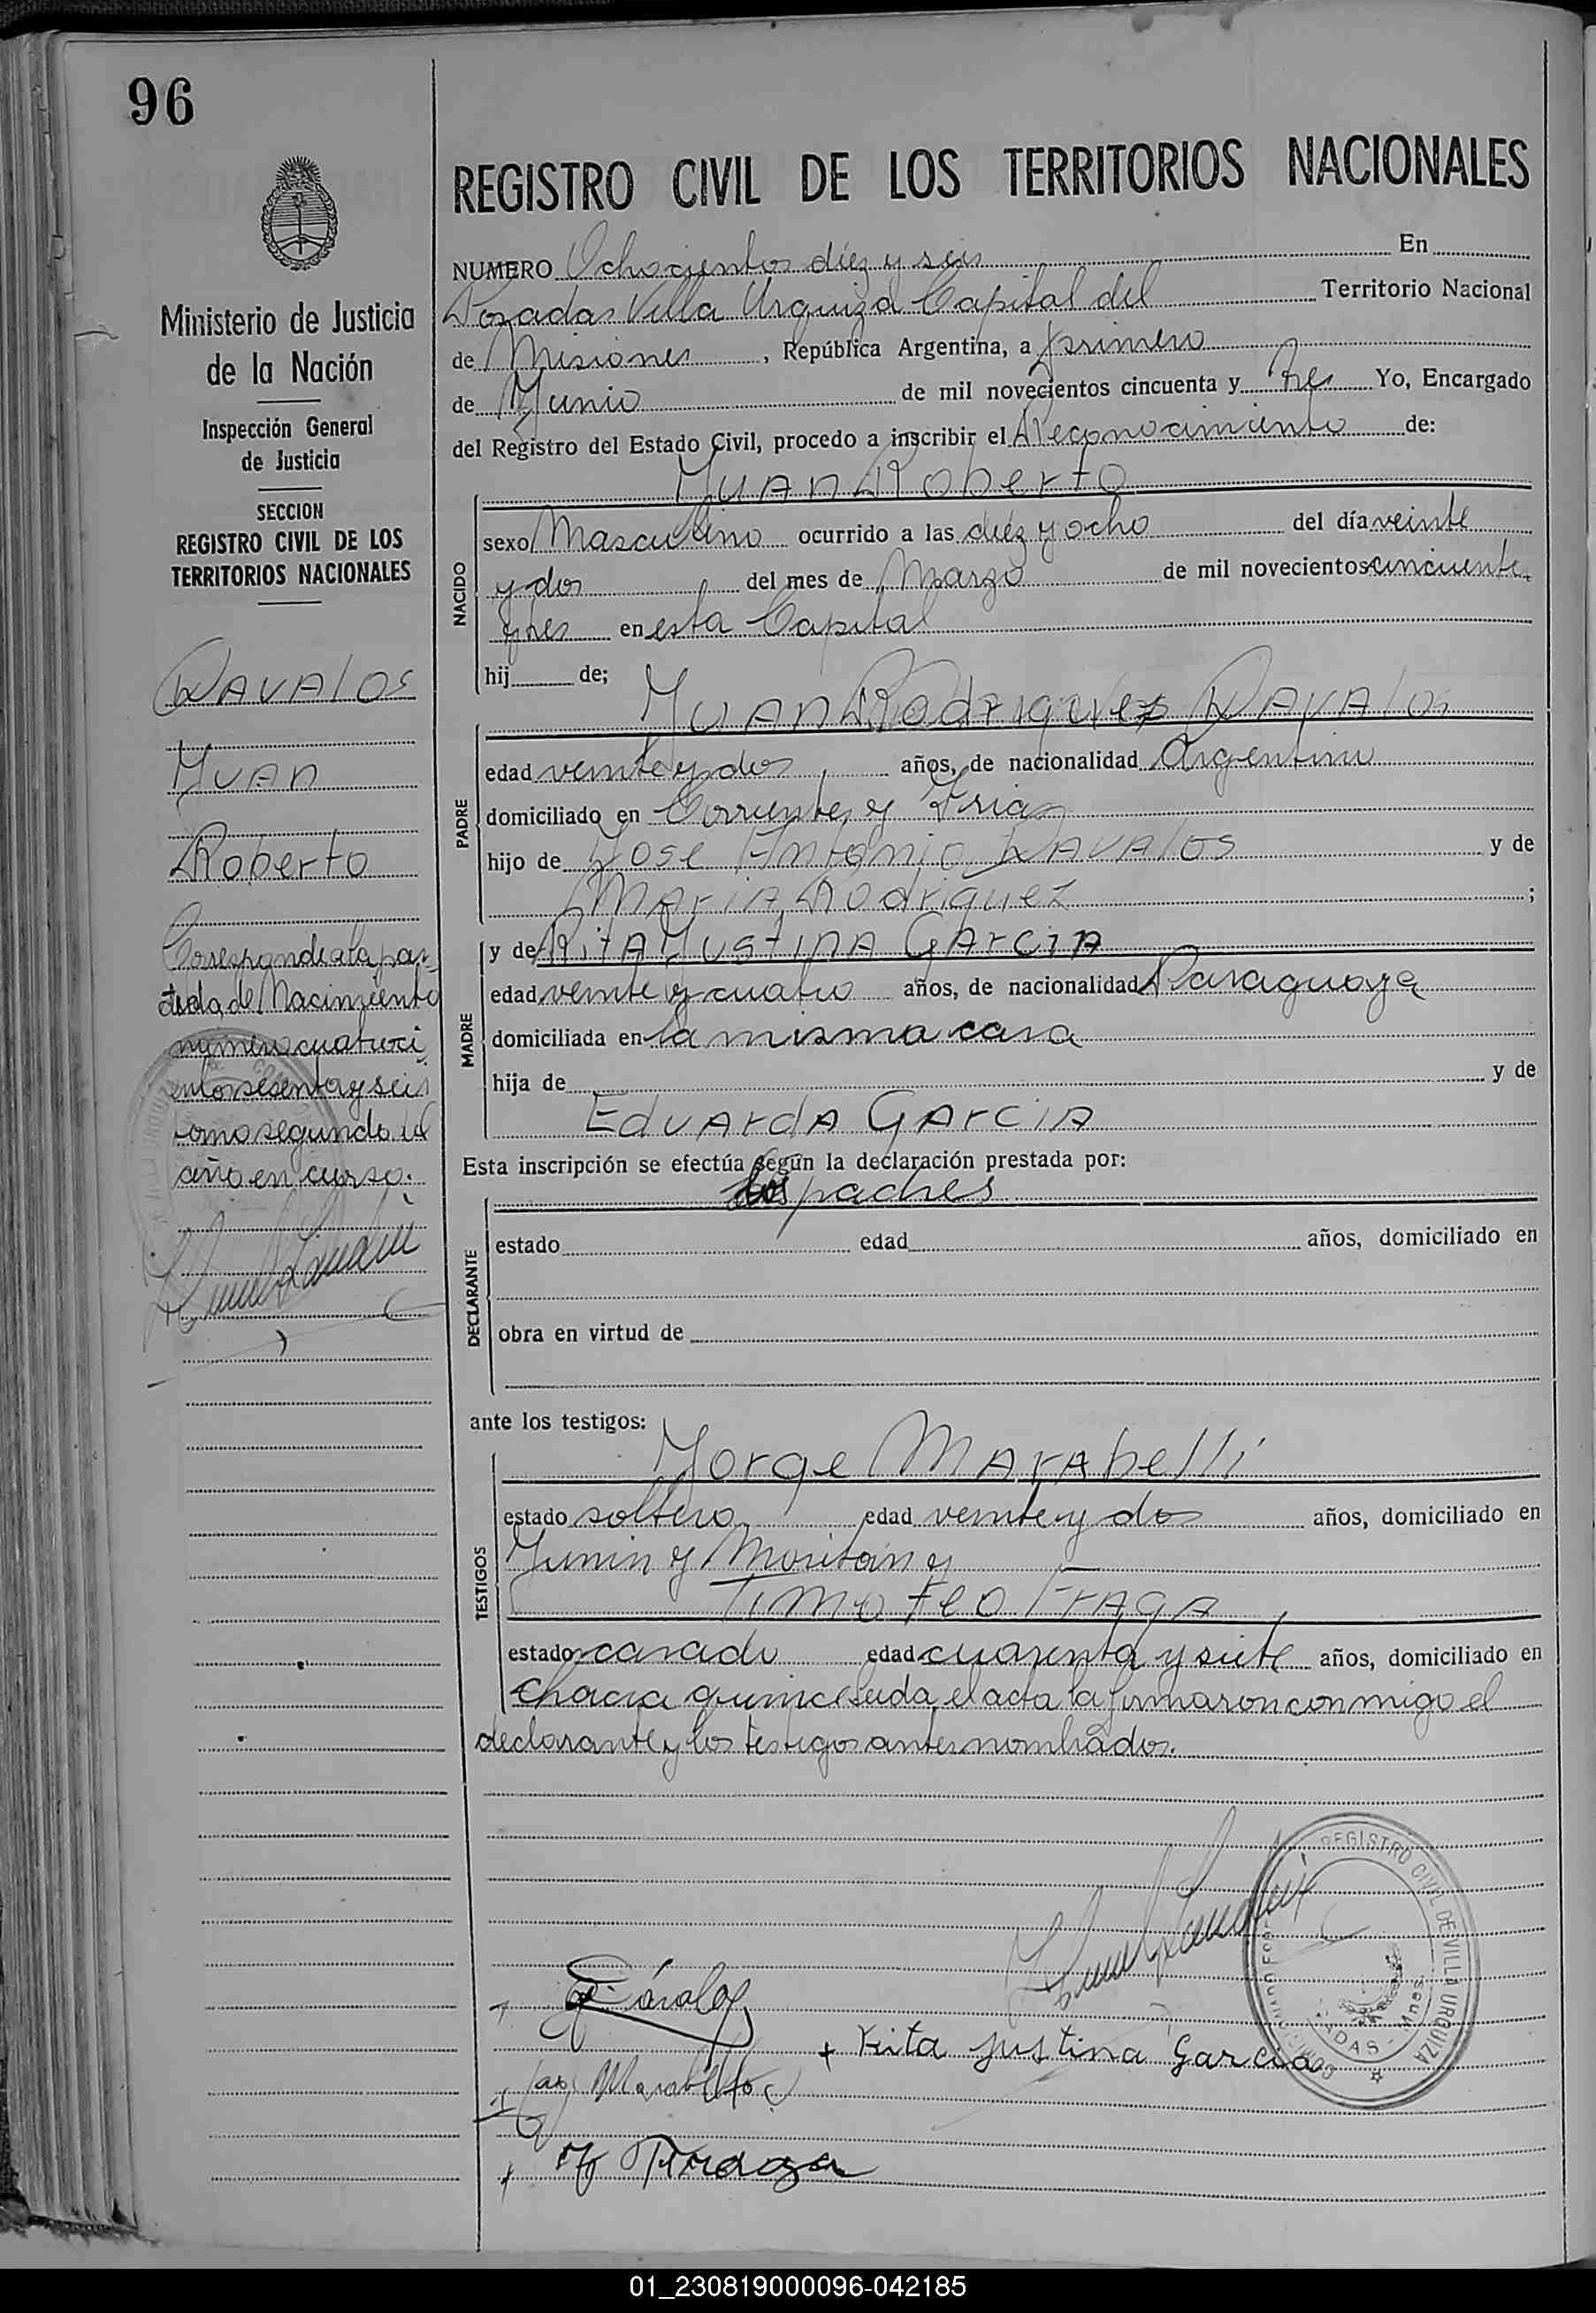 96
REGISTRO CIVIL DE LOS TERRITORIOS NACIONALES
Ministerio de Justicia
de la Nación
Inspección General
de Justicia
SECCION
REGISTRO CIVIL DE LOS
TERRITORIOS NACIONALES
DAVALOS
JUAN
Roberto
Corresponde a la par
tida de Nacimiento
numero cuatroci
entos sesenta y seis
tomo segundo del
año en curso.
NUMERO Ochocientos diez y seis En
Posadas Villa Urquiza Capital del Territorio Nacional
de Misiones, República Argentina, a primero
de Junio de mil novecientos cincuenta y tres Yo, Encargado
del Registro del Estado Civil, procedo a inscribir el Reconocimiento de:
JUAN Roberto
NACIDO
sexo Masculino ocurrido a las diez y ocho del día veinte
y dos del mes de Marzo de mil novecientos cincuenta
y tres en esta Capital
hij de;
JUAN Rodriguez DAVALOS
PADRE
edad veinte y dos, años, de nacionalidad Argentino
domiciliado en Corrientes y Frias
hijo de Jose Antonio DAVALOS y de
MARIA Rodriguez ;
y de RitA JustinA GArciA
MADRE
edad veinte y cuatro años, de nacionalidad Paraguaya
domiciliada en la misma casa
hija de y de
EduArdA GArciA
Esta inscripción se efectúa según la declaración prestada por:
los padres
DECLARANTE
estado edad años, domiciliado en
obra en virtud de
ante los testigos:
Jorge MArAbelli
TESTIGOS
estado soltero edad veinte y dos años, domiciliado en
Junin y Moritán y
Timoteo FrAGA
estado casado edad cuarenta y siete años, domiciliado en
Chacra quince leida el acta la firmaron conmigo el
declarante y los testigos antes nombrados.
REGISTRO CIVIL DE VILLA URQUIZA
+ Rita Justina Garcia
01_230819000096-042185